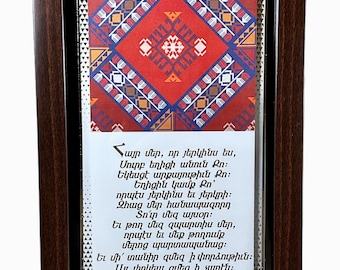 Հայր մեր, որ յերկինս ես,
Սուրբ եղիցի անուն Քո:
Եկեսցէ արքայութիւն Քո:
Եղիցին կամք Քո՝
որպէս յերկինս եւ յերկրի:
Զհաց մեր հանապազորդ
Տո՛ւր մեզ այսօր:
Եւ թող մեզ զպարտիս մեր,
որպէս եւ մեք թողումք
մերոց պարտապանաց:
Եւ մի՛ տանիր զմեզ ի փորձութիւն:
Այլ փրկեա զմեզ ի չարէն: